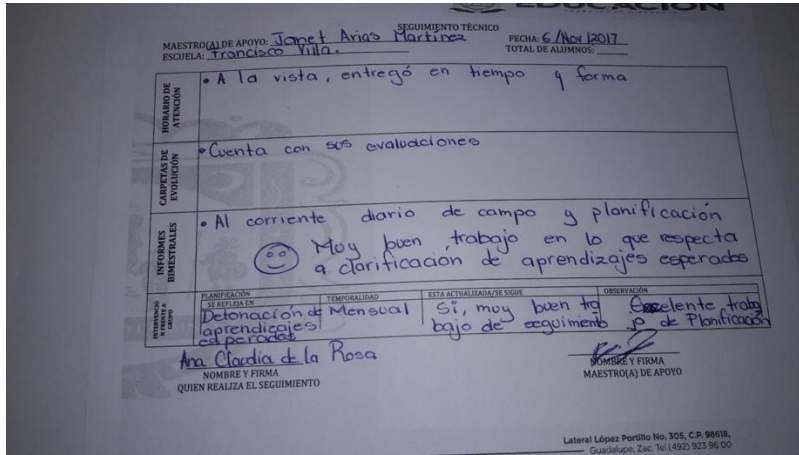 EDUCACIÓN
SEGUIMIENTO TÉCNICO
MAESTRO(A) DE APOYO: Janet Arias Martínez FECHA: 6/Nov/2017
ESCUELA: Francisco Villa. TOTAL DE ALUMNOS:
HORARIO DE
ATENCIÓN
• A la vista, entregó en tiempo y forma
CARPETAS DE
EVOLUCIÓN
• Cuenta con sus evaluaciones
INFORMES
BIMESTRALES
• Al corriente diario de campo y planificación
Muy buen trabajo en lo que respecta
a clarificación de aprendizajes esperados
INTERVENCIÓ
N FRENTE A
GRUPO
PLANIFICACIÓN
SE REFLEJA EN
Detonación de
aprendizajes
esperados
TEMPORALIDAD
Mensual
ESTA ACTUALIZADA/SE SIGUE
Si, muy buen tra
bajo de seguimiento
OBSERVACIÓN
Excelente traba
jo de Planificación
Ana Claudia de la Rosa
NOMBRE Y FIRMA
QUIEN REALIZA EL SEGUIMIENTO
NOMBRE Y FIRMA
MAESTRO(A) DE APOYO
Lateral López Portillo No. 305, C.P. 98618,
Guadalupe, Zac. Tel.(492) 923 96 00